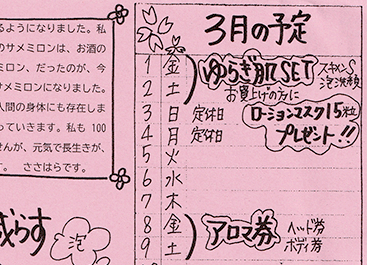 るようになりました。私
のサメミロンは、お酒の
ミロン、だったのが、今
サメミロンになりました。
人間の身体にも存在しま
っていきます。私も 100
せんが、元気で長生きが、
す。 ささはらです。
減らす
泡
3月の予定
1 金
2 土
ゆらぎ肌SET
スキメンS
泡洗顔
お買上げの方に
3 日 定休日
4 月 定休日
ローションマスク15粒
プレゼント!!
5 火
6 水
7 木
8 金
9 土
アロマ券
ヘッド券
ボディ券